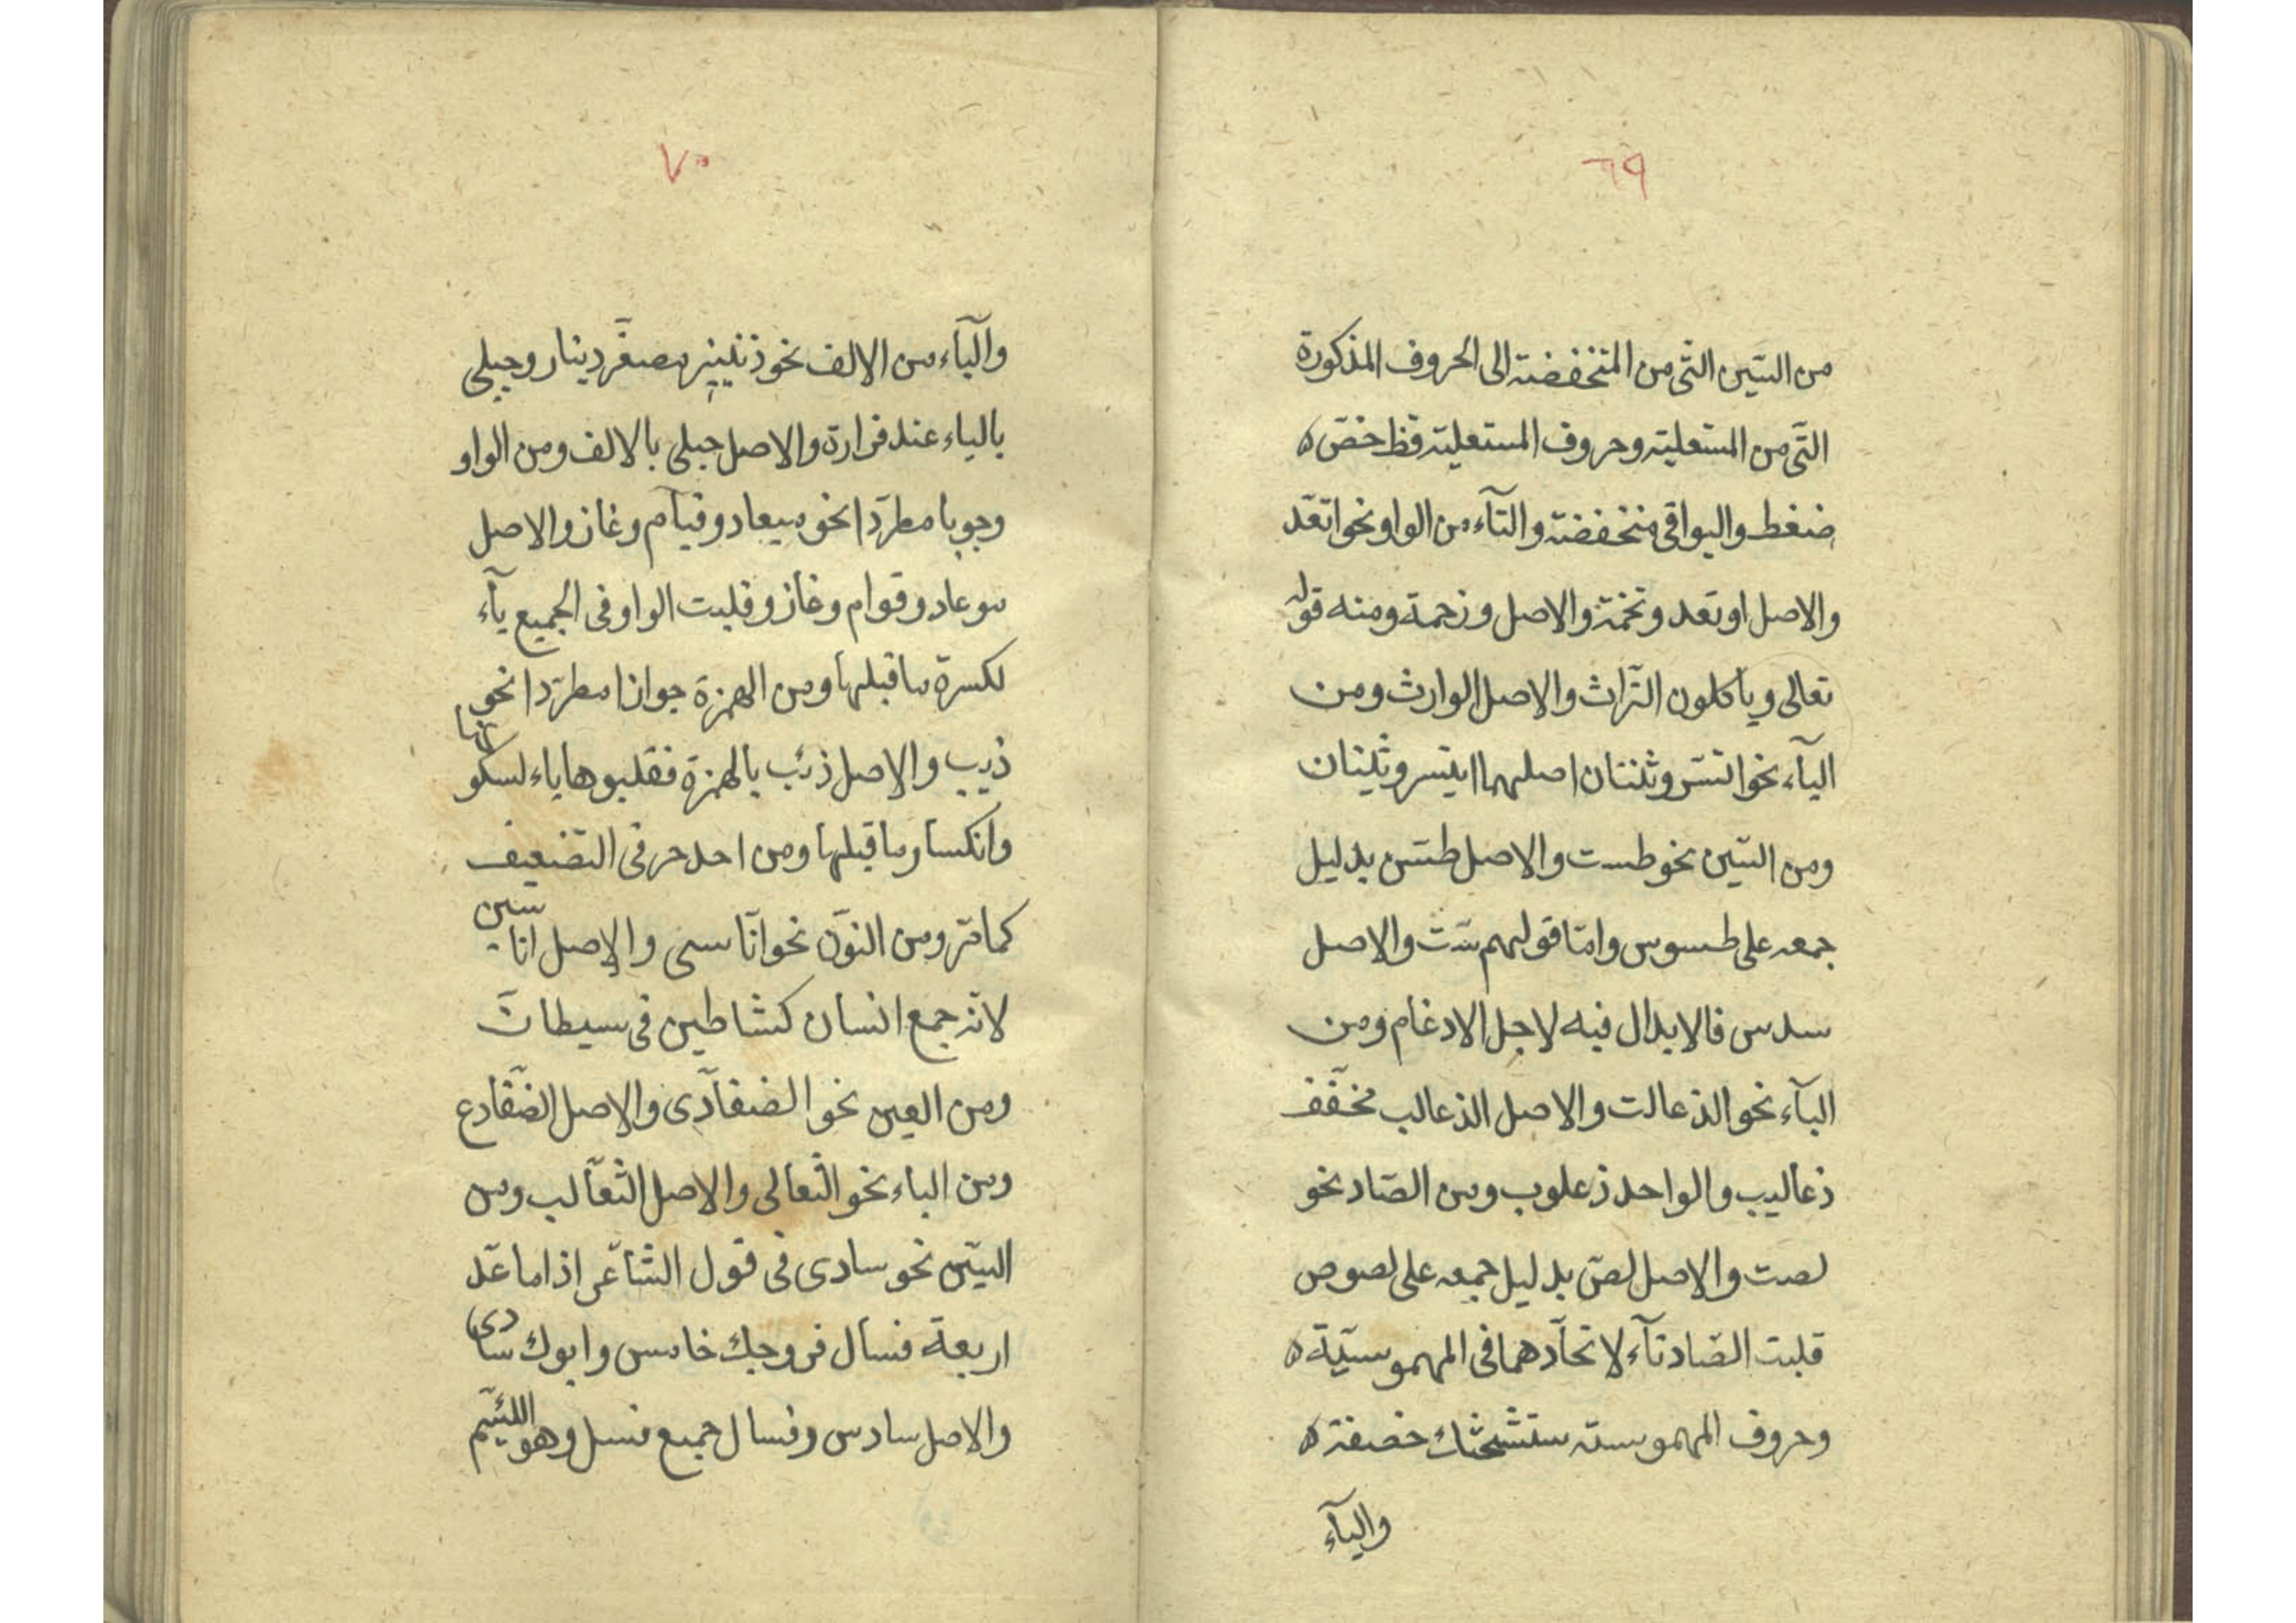 ٦٩
من السّين التّى من المنخفضة الى الحروف المذكورة
التّى من المستعلية وحروف المستعلية قظ خصّ ه
ضغط والبواقى منخفضة والتآء من الواو نحو اتعّد
والاصل اوتعد وتخمة والاصل وزحمة ومنه قوله
تعالى وياكلون التّراث والاصل الوارث ومن
اليآء نحو اتسّر وثنتان اصلهما ايتسر وثنيتان
ومن السّين نحو طست والاصل طسّس بدليل
جمعه على طسوس وامّا قولهم ستّ والاصل
سدس فالابدال فيه لاجل الادغام ومن
البآء نحو الذعالت والاصل الذعالب مخفّف
ذعاليب والواحد ذعلوب ومن الصّاد نحو
لصت والاصل لصّ بدليل جمعه على لصوص
قلبت الصّاد تآء لاتحآدهما فى المهموسيّة ه
وحروف المهموسة ستشحثك خصفة ه
واليآء
٧٠
واليآء من الالف نحو ذنينير مصغّر دينار وحبلى
بالياء عند فزارة والاصل حبلى بالالف ومن الواو
وجوبا مطرّدا نحو ميعاد وقيآم وغاز والاصل
موعاد وقوام وغازو قلبت الواو فى الجميع يآء
لكسرة ما قبلها ومن الهمزة جوازا مطرّدا نحو
ذيب والاصل ذئب بالهمزة فقلبوها ياء لسكونها
وانكسار ما قبلها ومن احد حرفى التضعيف
كما مرّ ومن النّون نحو انّاسى والاصل اناسين
لانّه جمع انسان كشاطين فى سيطانَ
ومن العين نحو الضفآدى والاصل الضّفادع
ومن الباء نحو الثّعالى والاصل الثّعآلب ومن
السّين نحو سادى فى قول الشّاعر اذا ما عّد
اربعة فسال فزوجك خامس وابوك سادى
والاصل سادس وفسال جميع فسل وهو اللئيم